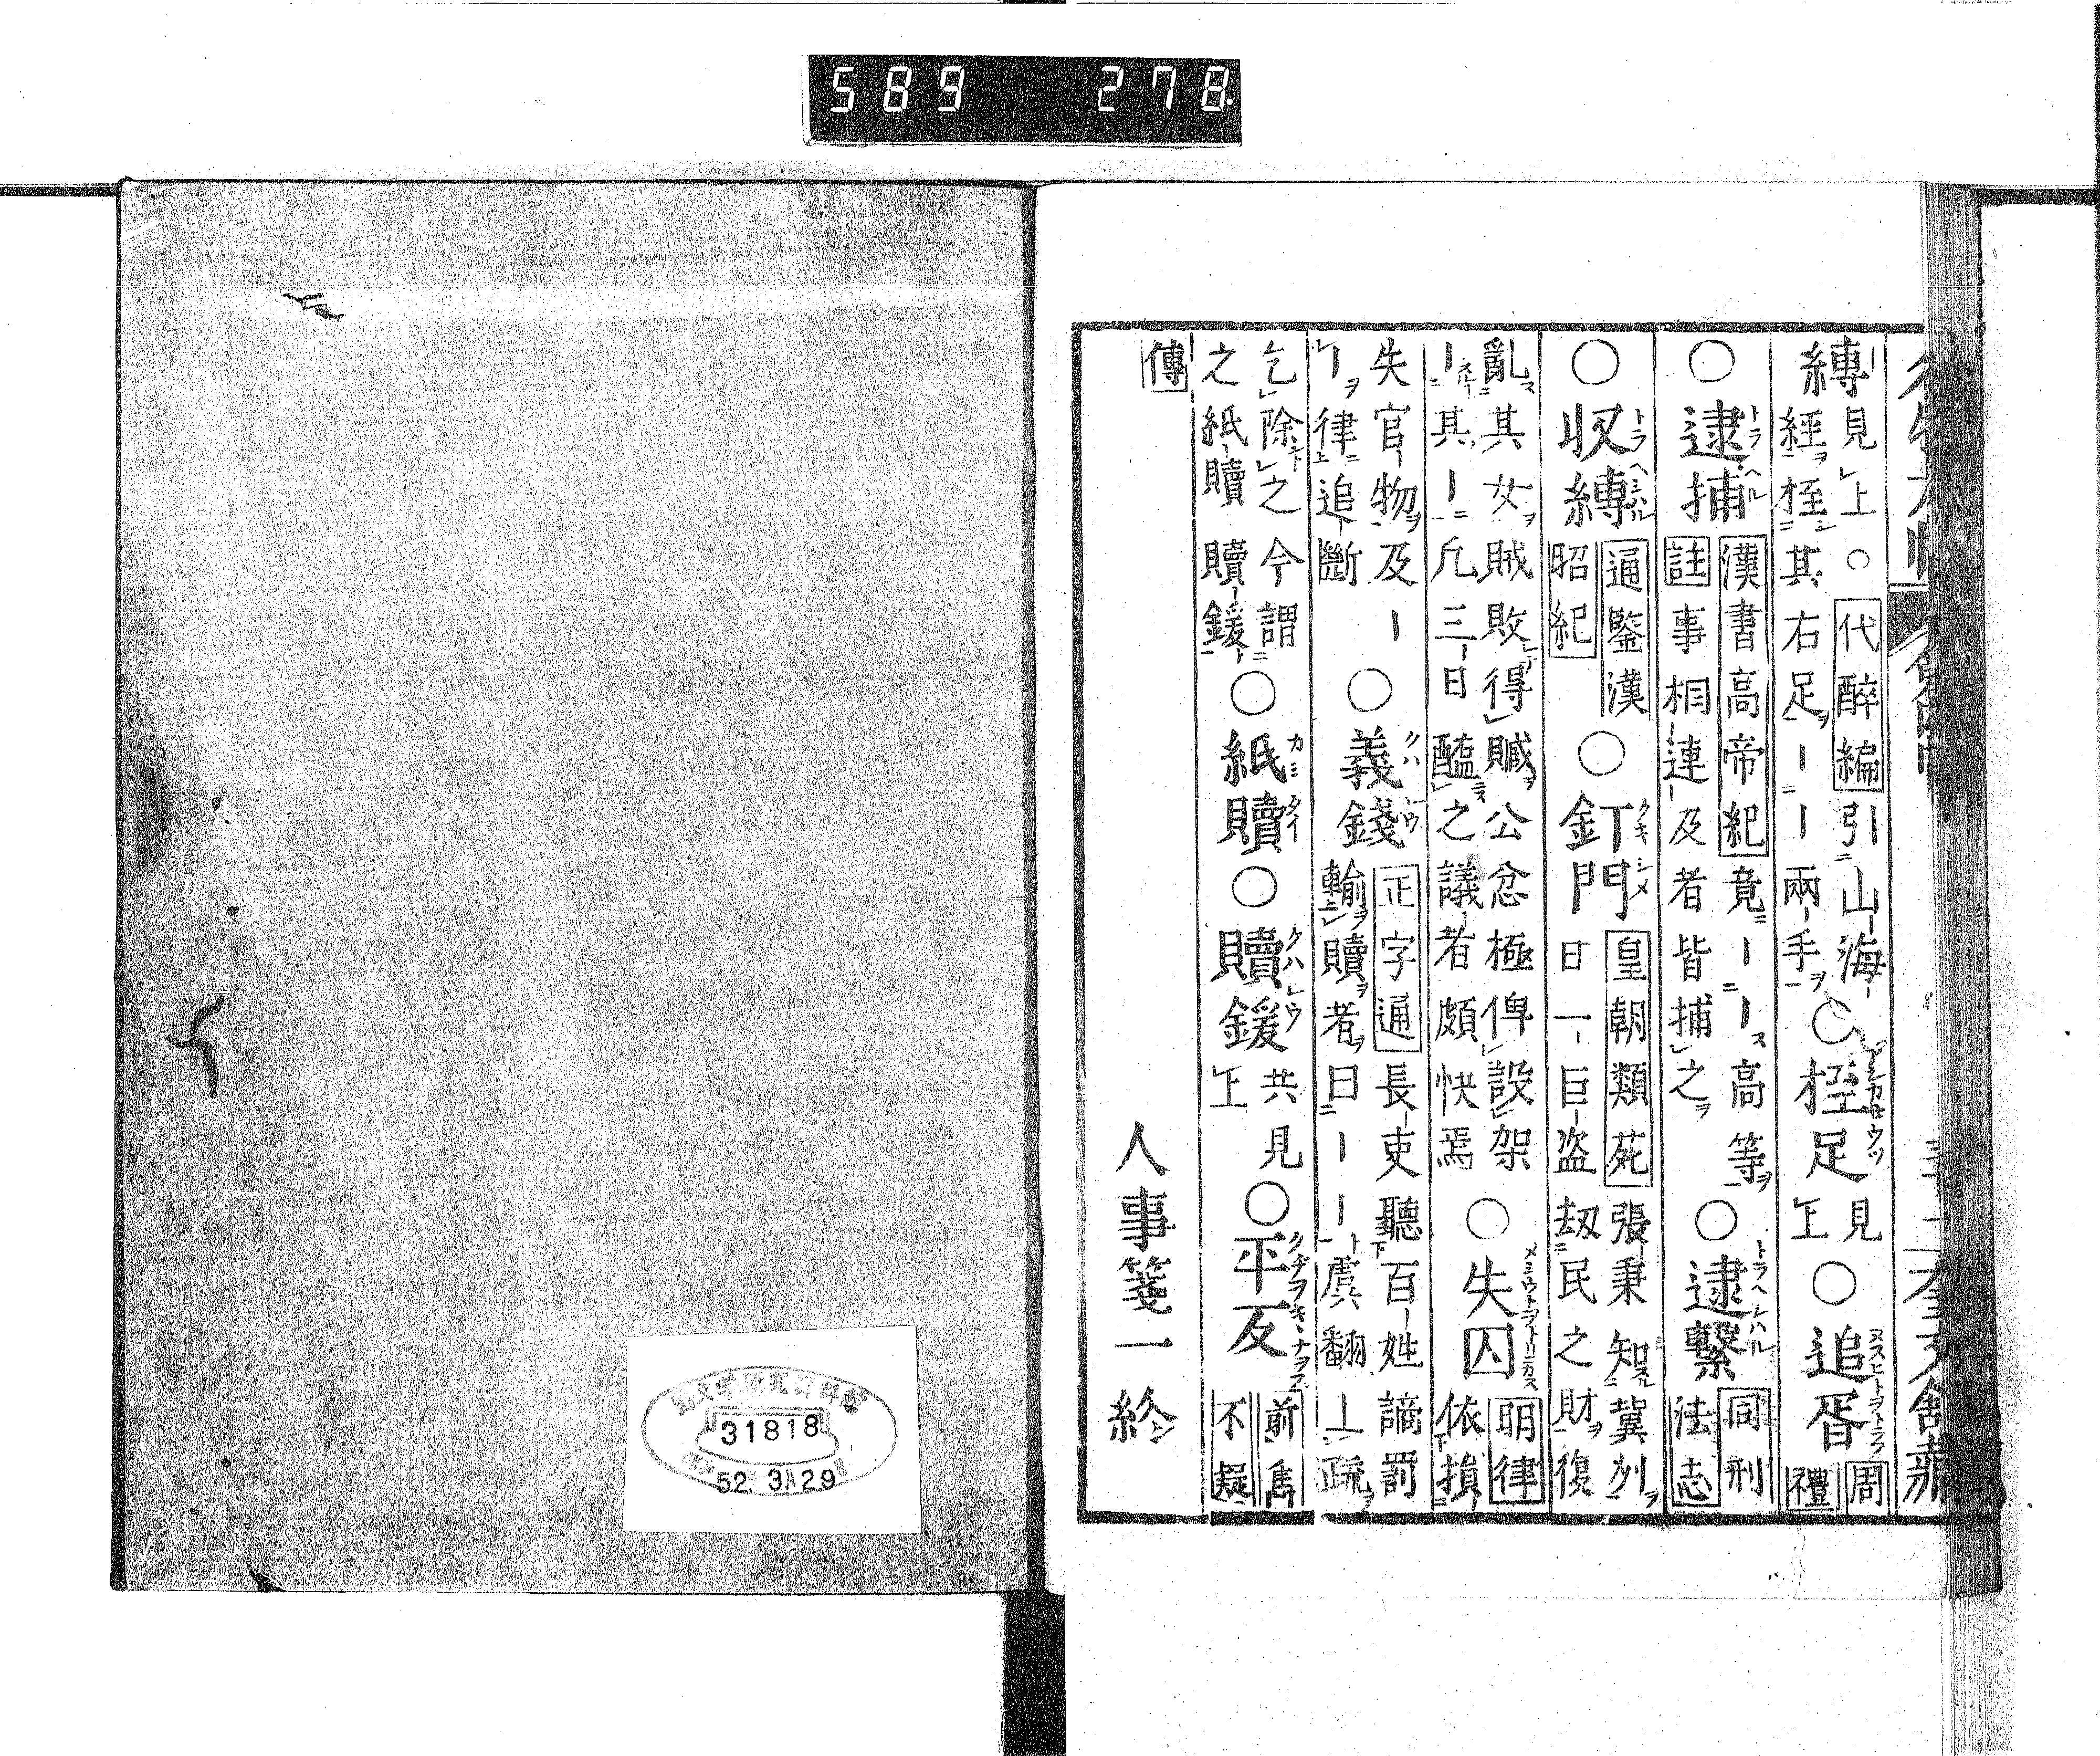 589 278
縳 見上○代醉編引山海
經桎其右足一一兩手○桎足見上○追胥周禮
○逮捕漢書高帝紀竟一一高等
註事相連及者皆捕之○逮繫同刑法志
○収縳通鑒漢昭紀○釘門皇朝類苑張秉知冀列
日一巨盗劫民之財復
亂其女賊敗得贓公忿極俾設架
一其一凢三日醢之議者頗快焉○失囚明律依損
失官物及一
一律追斷○義錢正字通長吏聽百姓謫罰
輸贖者曰一一虞翻上疏
乞除之今謂
之紙贖贖鍰○紙贖○贖鍰共見上○平反前雋不疑
傳
人事箋一終
31818
52. 3月29